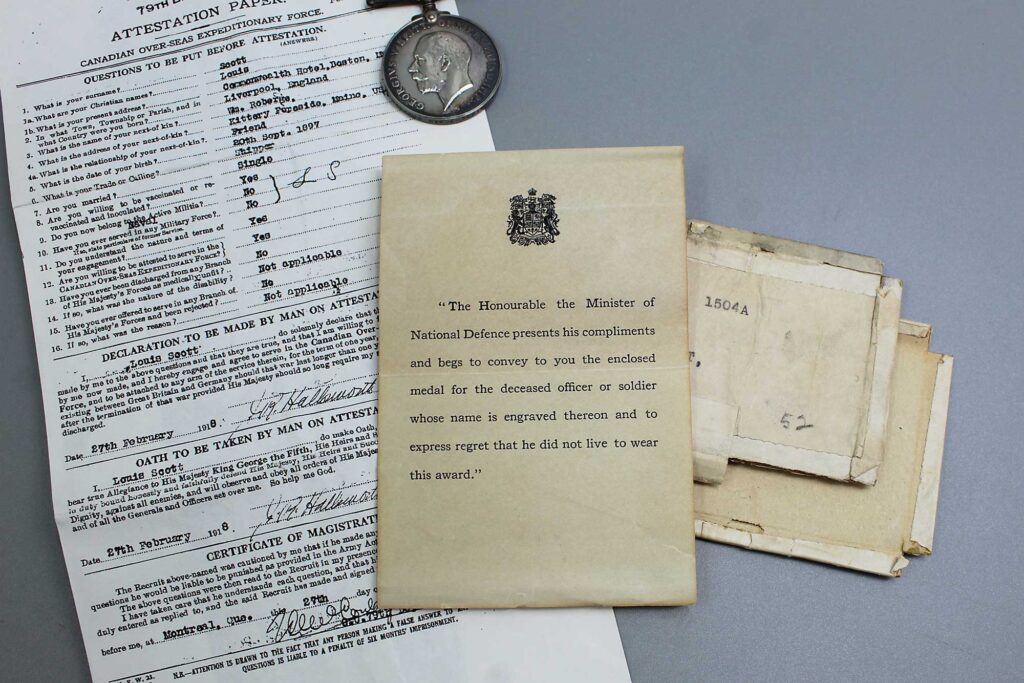 79TH
ATTESTATION PAPER.
CANADIAN OVER-SEAS EXPEDITIONARY FORCE.
QUESTIONS TO BE PUT BEFORE ATTESTATION.
(ANSWERS)
1. What is your surname? Scott
1a. What are your Christian names? Louis
1b. What is your present address? Commonwealth Hotel, Boston,
2. In what Town, Township or Parish, and in
what Country were you born? Liverpool, England
3. What is the name of your next-of-kin? Ms. Roberge.
4. What is the address of your next-of-kin? Kittery Foreside, Maine.
4a. What is the relationship of your next-of-kin? Friend
5. What is the date of your birth? 20th Sept. 1897
6. What is your Trade or Calling? Shipper
7. Are you married? Single
8. Are you willing to be vaccinated or re-
vaccinated and inoculated? Yes
9. Do you now belong to the Active Militia? No
10. Have you ever served in any Military Force? No
If so, state particulars of former Service.
11. Do you understand the nature and terms of
your engagement? Yes
12. Are you willing to be attested to serve in the
CANADIAN OVER-SEAS EXPEDITIONARY FORCE? Yes
13. Have you ever been discharged from any Branch
of His Majesty's Forces as medically unfit? No
14. If so, what was the nature of the disability? Not applicable
15. Have you ever offered to serve in any Branch of
His Majesty's Forces and been rejected? No
16. If so, what was the reason? Not applicable
DECLARATION TO BE MADE BY MAN ON
I, Louis Scott, do solemnly declare that the
made by me to the above questions and that they are true, and that I am willing to
by me now made, and I hereby engage and agree to serve in the Canadian Over-
Force, and to be attached to any arm of the service therein, for the term of one year,
existing between Great Britain and Germany should that war last longer than one
after the termination of that war provided His Majesty should so long require my
discharged.
Date 27th February 1918.
OATH TO BE TAKEN BY MAN ON
I, Louis Scott, do make Oath,
bear true Allegiance to His Majesty King George the Fifth, His Heirs and
in duty bound honestly and faithfully defend His Majesty, His Heirs and
Dignity, against all enemies, and will observe and obey all orders of His Majesty
and of all the Generals and Officers set over me. So help me God.
Date 27th February 1918
CERTIFICATE OF
The Recruit above-named was cautioned by me that if he made any
questions he would be liable to be punished as provided in the Army
The above questions were then read to the Recruit in my presence
I have taken care that he understands each question, and that
duly entered as replied to, and the said Recruit has made and signed
before me, at Montreal, Que. this 27th day
N.B.—ATTENTION IS DRAWN TO THE FACT THAT ANY PERSON MAKING A FALSE ANSWER TO
QUESTIONS IS LIABLE TO A PENALTY OF SIX MONTHS' IMPRISONMENT.
GEORGIVS V
"The Honourable the Minister of
National Defence presents his compliments
and begs to convey to you the enclosed
medal for the deceased officer or soldier
whose name is engraved thereon and to
express regret that he did not live to wear
this award."
1504A
52